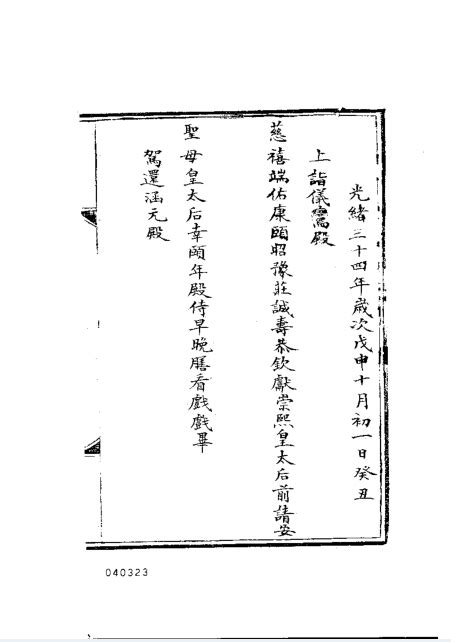 光緒三十四年歲次戊申十月初一日癸丑
上詣儀鸞殿
慈禧端佑康頤昭豫莊誠壽恭欽獻崇熙皇太后前請安
聖母皇太后幸頤年殿侍早晚膳看戲戲畢
駕還涵元殿
040323